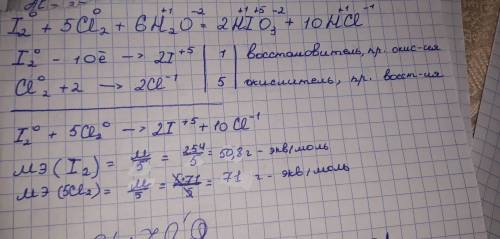 I₂⁰ + 5Cl₂⁰ + 6H₂⁺¹O⁻² = 2H⁺¹I⁺⁵O₃⁻² + 10HCl⁻¹
I₂⁰ - 10ē → 2I⁺⁵ | 1 | восстановитель, пр. окис-ия
Cl₂⁰ + 2 → 2Cl⁻¹ | 5 | окислитель, пр. восст-ия
I₂⁰ + 5Cl₂⁰ → 2I⁺⁵ + 10Cl⁻¹
мэ (I₂) = м/5 = 254/5 = 50,8 г - экв/моль
мэ (5Cl₂) = м/5 = 5·71/5 = 71 г - экв/моль